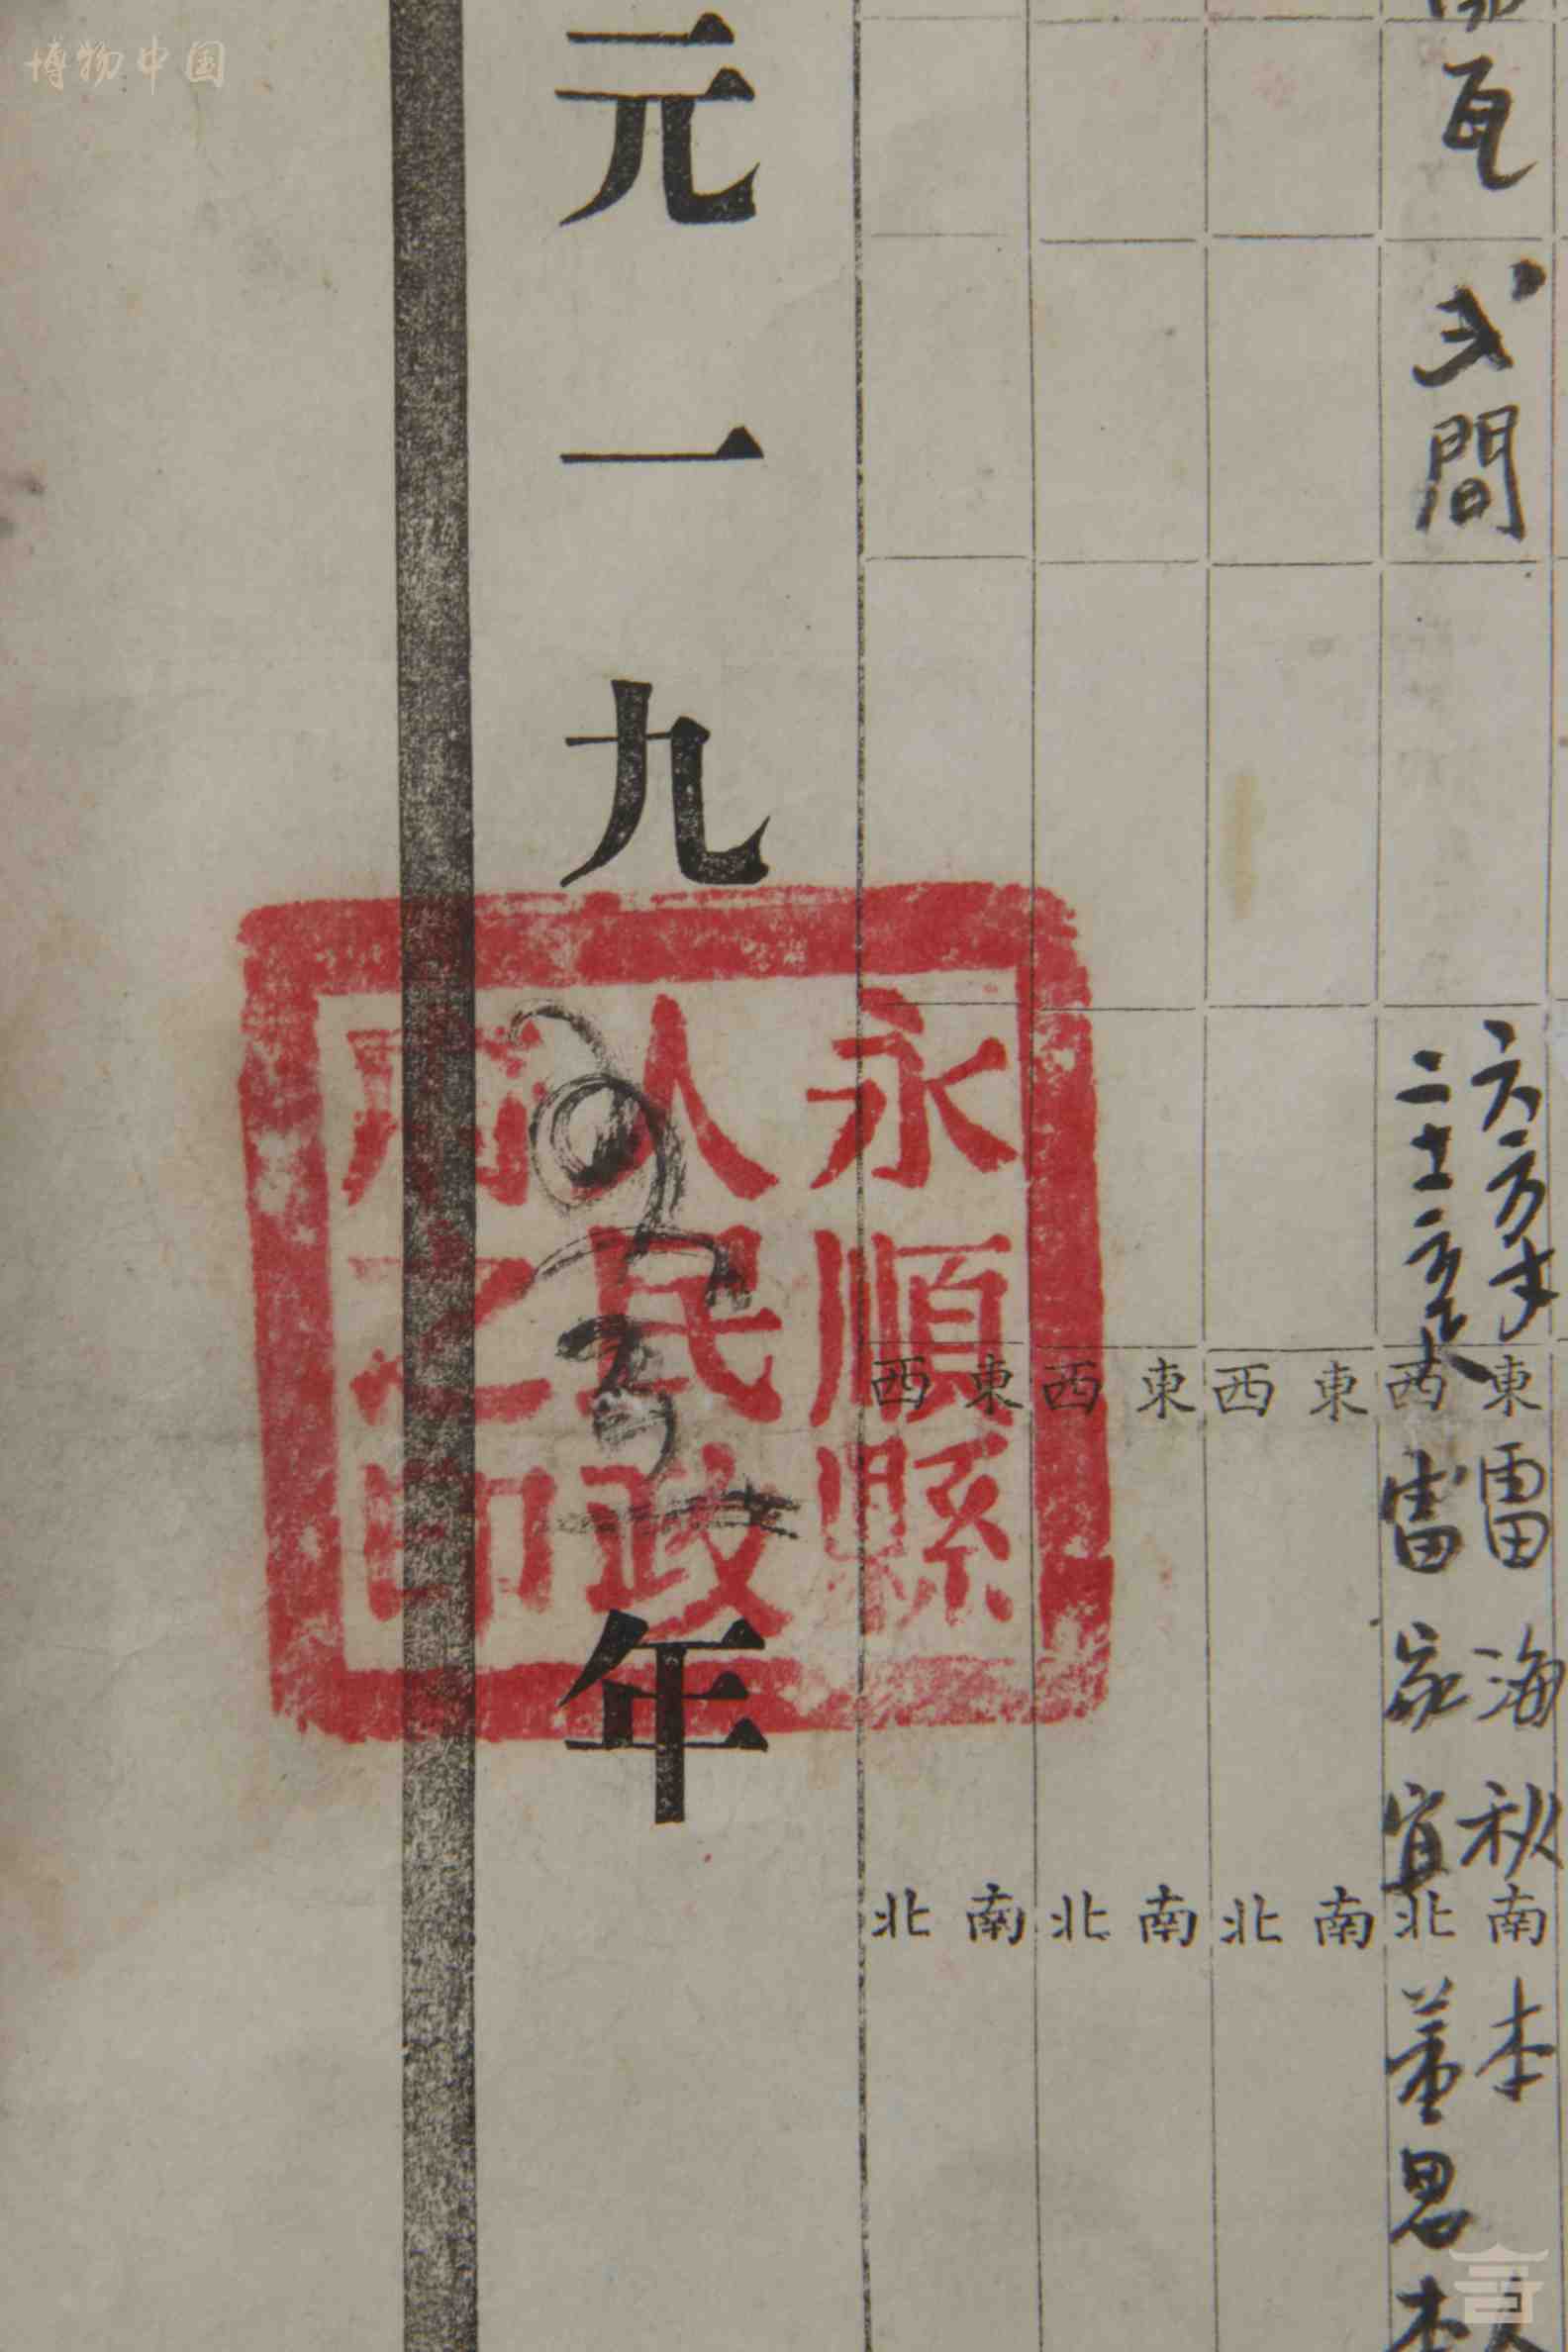 博物中国
瓦
弍間
六方丈
二十二方丈
東 雷海秋
西 雷家宜
南 本
北 董思
東
西
南
北
東
西
南
北
東
西
南
北
元一九五三年
永順縣
人民政
府之印